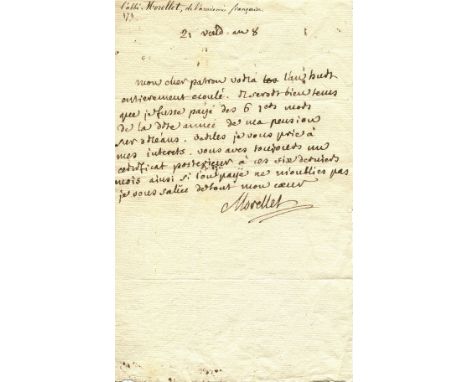 l'abbé Morellet, de l'académie française
21 vend. an 8
mon cher patron voila l'an huit
entierement ecoulé. il seroit bien tems
que je fusse payé des 6 ders mois
de la dite année de ma pension
sur orléans. veilles je vous prie à
mes interets. vous aves toujours un
certificat posterieur à ces six derniers
mois ainsi si l'on paye ne m'oublies pas
je vous salue de tout mon cœur
Morellet